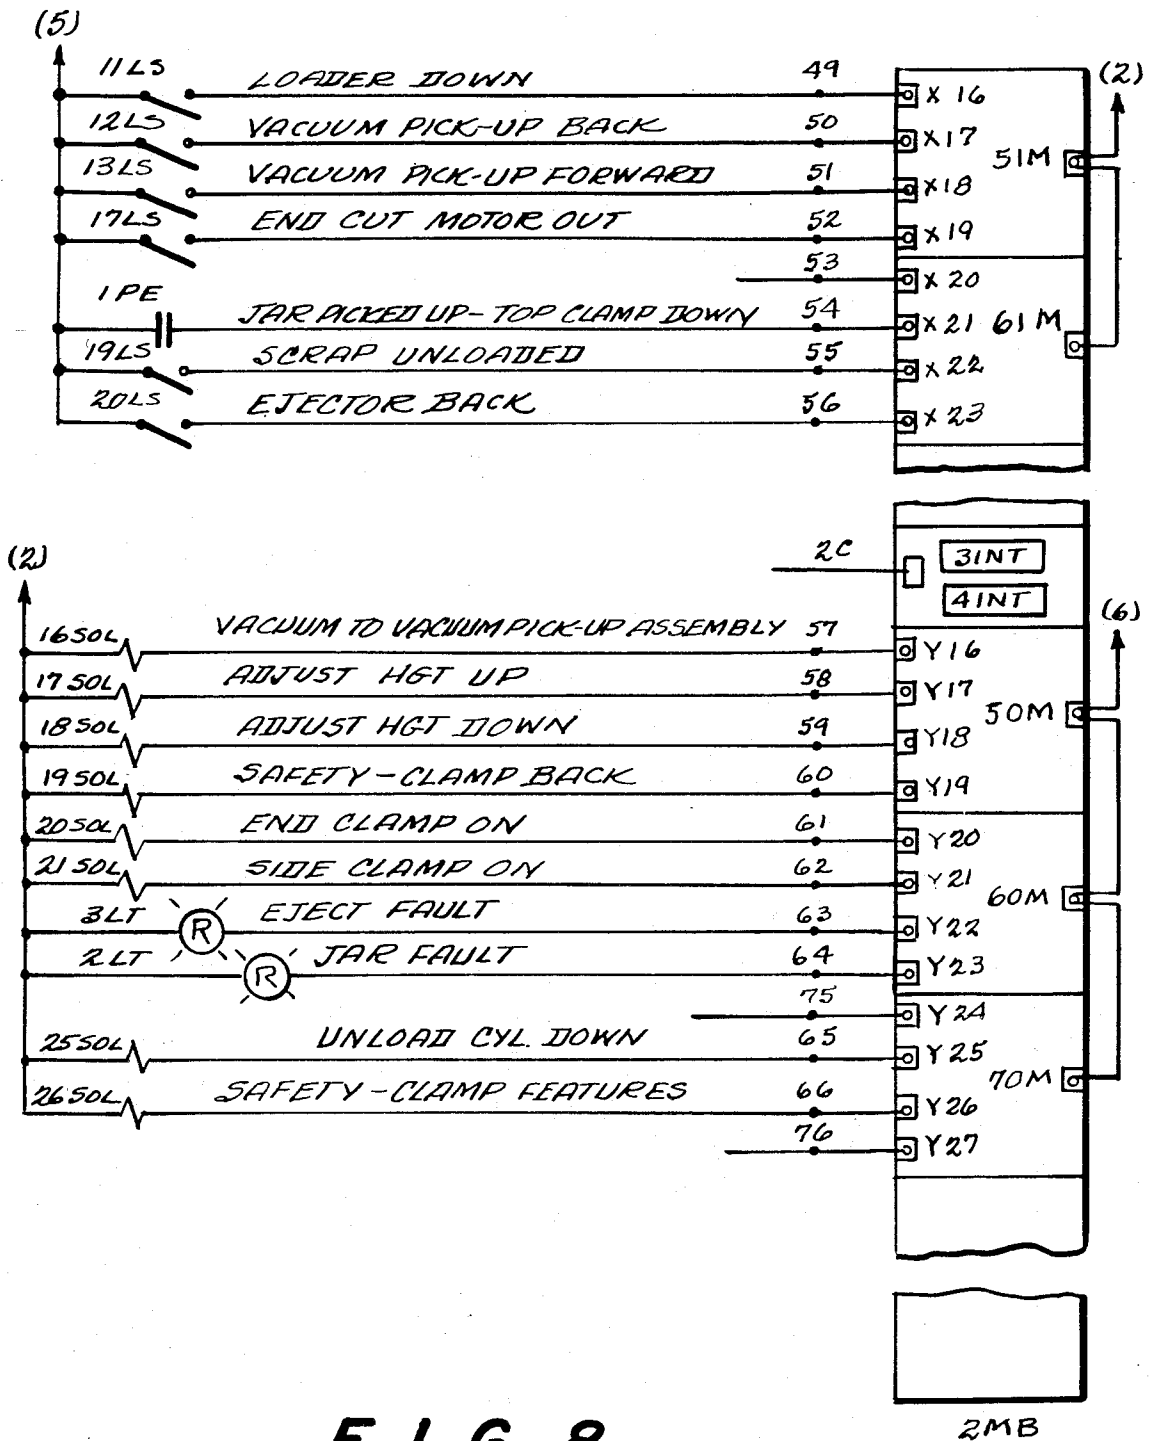 (5)
11LS LOADER DOWN 49 X 16 (2)
12LS VACUUM PICK-UP BACK 50 X17 51M
13LS VACUUM PICK-UP FORWARD 51 X18
17LS END CUT MOTOR OUT 52 X19
53 X 20
1PE JAR PICKED UP-TOP CLAMP DOWN 54 X21 61M
19LS SCRAP UNLOADED 55 X22
20LS EJECTOR BACK 56 X 23
(2) 2C 3INT
4INT (6)
16SOL VACUUM TO VACUUM PICK-UP ASSEMBLY 57 Y16
17SOL ADJUST HGT UP 58 Y17 50M
18SOL ADJUST HGT DOWN 59 Y18
19SOL SAFETY-CLAMP BACK 60 Y19
20SOL END CLAMP ON 61 Y20
21SOL SIDE CLAMP ON 62 Y21 60M
3LT R EJECT FAULT 63 Y22
2LT R JAR FAULT 64 Y23
75 Y24
25SOL UNLOAD CYL. DOWN 65 Y25 70M
26SOL SAFETY-CLAMP FEATURES 66 Y26
76 Y27
2MB
FIG. 8